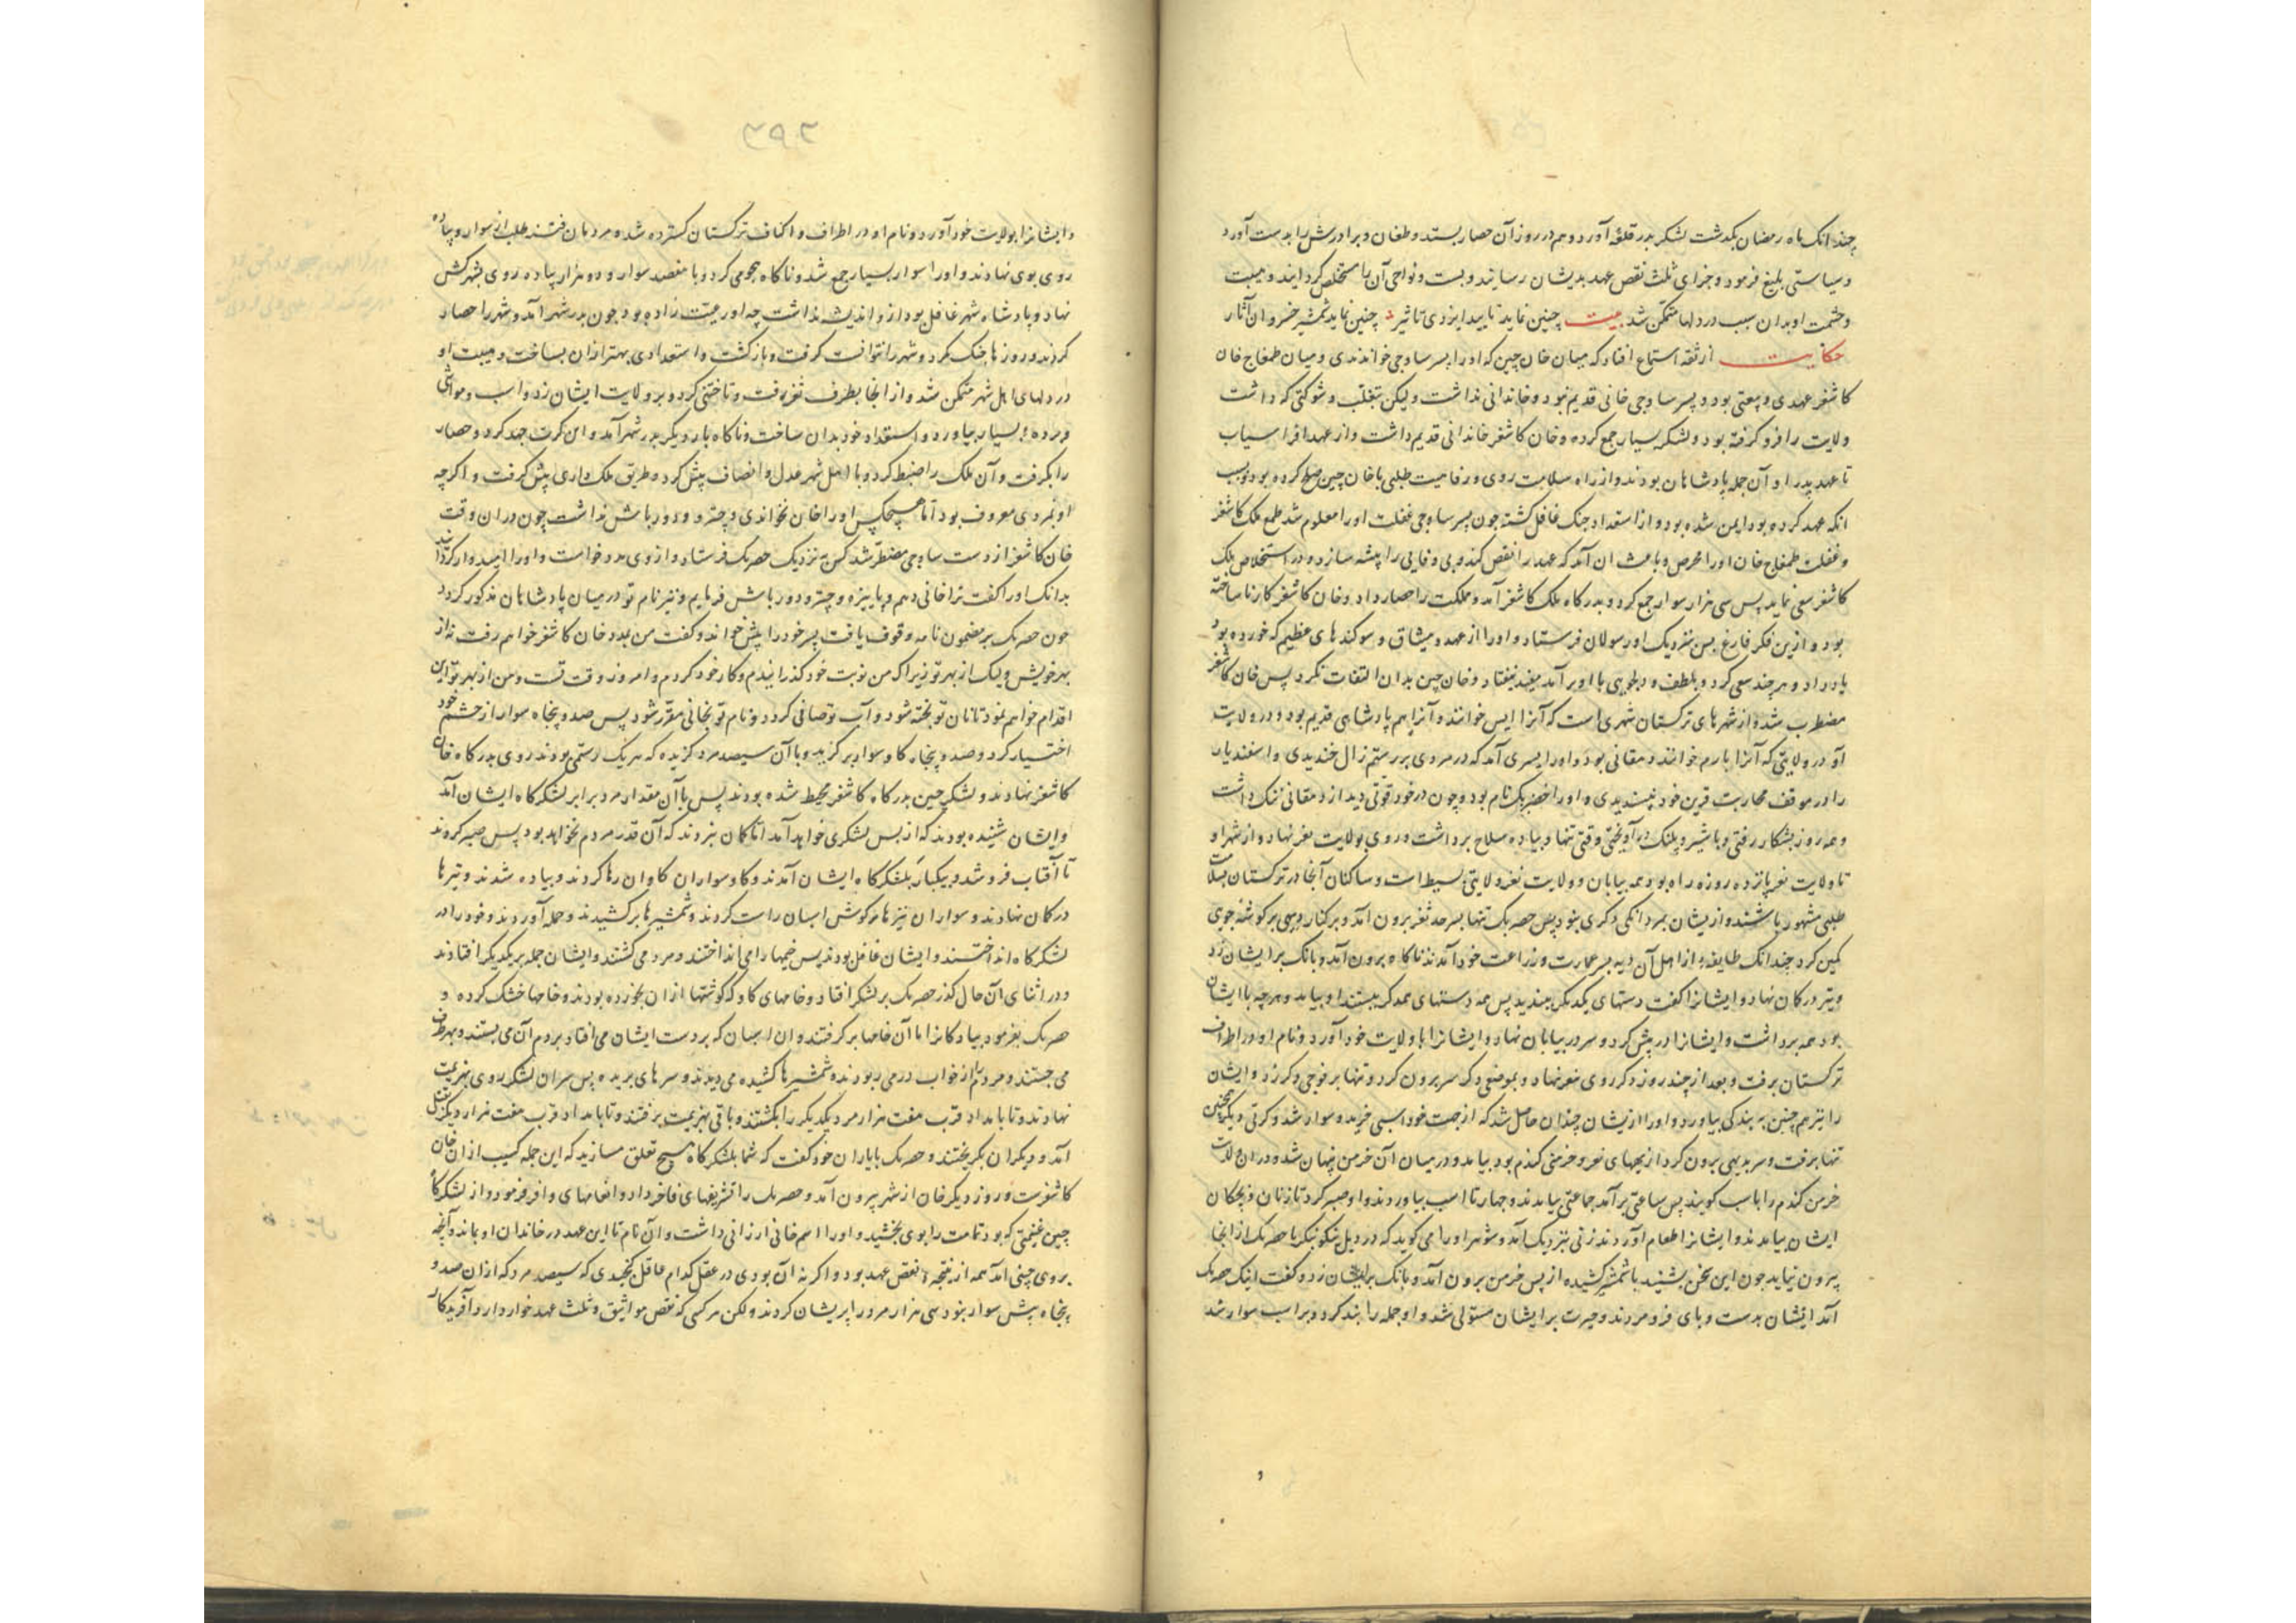 چندانک ماه رمضان بگذشت لشکر بدر قلعه آورد و هم در روز آن حصار بستد و طغان و برادرش را بدست آورد
و سیاستی بلیغ فرمود و جزای نکث نقض عهد بدیشان رسانید و بست و نواحی آن را مستخلص گردانید و هیبت
و حشمت او بدان سبب در دلها متمکن شد بیت چنین نماید تایید ایزدی تاثیر چنین نماید شمشیر خسروان آثار
حکایت از ثقه استماع افتاد که میان خان چین که او را پسر ساوجی خواندندی و میان طمغاج خان
کاشغر عهدی و بیعتی بود و پسر ساوجی خانی قدیم نبود و خاندانی نداشت ولیکن بتغلب و شوکتی که داشت
ولایت را فرو گرفته بود و لشکر بسیار جمع کرده و خان کاشغر خاندانی قدیم داشت و از عهد افراسیاب
تا عهد پدر او آن جمله پادشاهان بودند و از راه سلامت روی و رفاهیت طلبی با خان چین صلح کرده بود و بسبب
انکه عهد کرده بود ایمن شده بود و از استعداد جنک غافل کشته چون پسر ساوجی غفلت او را معلوم شد طمع ملک کاشغر
و غفلت طمغاج خان او را محرص و باعث ان آمد که عهد را نقض کند و بی وفایی را پیشه سازد و در استخلاص ملک
کاشغر سعی نماید پس سی هزار سوار جمع کرد و بدر کاه ملک کاشغر آمد و مملکت را حصار داد و خان کاشغر کار نا ساخته
بود و ازین فکر فارغ پس بنزدیک او رسولان فرستاد و او را از عهد و میثاق و سوکندهای عظیم که خورده بود
یاد داد و هر چند سعی کرد و بلطف و دلجویی با او بر آمد مفید نیفتاد و خان چین بدان التفات نکرد پس خان کاشغر
مضطرب شد و از شهرهای ترکستان شهری است که آنرا ایس خوانند و آنرا هم پادشاهی قدیم بود و در ولایت
او در ولایتی که آنرا بارم خوانند دهقانی بود و او را پسری آمد که در مردی بر رستم زال خندیدی و اسفندیار
را در موقف محاربت قرین خود نپسندیدی و او را خضر بک نام بود و چون در خود قوتی دید از دهقانی ننک داشت
و همه روز بشکار رفتی و با شیر و پلنک در آویختی وقتی تنها و پیاده سلاح برداشت و روی بولایت نغر نهاد و از شهر او
تا ولایت نغر پانزده روزه راه بود همه بیابان و ولایت نغر ولایتی بسیط است و ساکنان آنجا در ترکستان بسلامت
طلبی مشهور باشند و از یشان بمردانکی ذکری نبود پس حصر بک تنها بسرحد نغر برون آمد و بر کنار دیهی بر کوشه جوی
کمین کرد چندانک طایفه از اهل آن دیه بسر عمارت و زراعت خود آمدند ناکاه برون آمد و بانک بر ایشان زد
و تیر در کمان نهاد و ایشانرا کفت دستهای یکدیکر ببندید پس همه دستهای همدکر ببستند او بیامد و هر چه با ایشان
بود همه برداشت و ایشانرا در پیش کرد و سر در بیابان نهاد و ایشانرا با ولایت خود آورد و نام او در اطراف
ترکستان برفت و بعد از چند روز دکر روی بنغر نهاد و بموضعی دکر سر برون کرد و تنها بر فوجی دکر زد و ایشان
را نیز هم چنین به بندکی بیاورد و او را از یشان چندان حاصل شد که از جهت خود اسبی خرید و سوار شد و کرتی دیکر همچنین
تنها برفت و سر بدیهی برون کرد از دیههای نغر و خرمنی کندم بود بیامد و در میان آن خرمن پنهان شد و در ان ولایت
خرمن کندم را با اسب کوبند پس ساعتی بر آمد جماعتی بیامدند و چهار تا اسب بیاوردند و او صبر کرد تا زنان و بچکان
ایشان بیامدند و ایشانرا طعام آوردند زنی بنزدیک آمد و شوهر او را می کوید که در دیل نیکو بنکر تا حصر بک از اینجا
برون نیاید چون این سخن بشنید با شمشیر کشیده از پس خرمن برون آمد و بانک بر ایشان زد و کفت اینک حصر بک
آمد ایشان دست و پای فرو مردند و حیرت بر ایشان مستولی شد و او جمله را بند کرد و بر اسب سوار شد
۳۹۲
و ایشانرا بولایت خود آورد و نام او در اطراف و اکناف ترکستان کسترده شد و مردمان فتنه طلب از سوار و پیاده
روی بوی نهادند و او را سوار بسیار جمع شد و ناکاه هجومی کرد و با هفصد سوار و دو هزار پیاده روی بشهر کش
نهاد و پادشاه شهر غافل بود از و اندیشه نداشت چه او رعیت زاده بود چون بدر شهر آمد و شهر را حصار
کردند و روزها جنک کرد و شهر را نتوانست کرفت و بازکشت و استعدادی بهتر از ان بساخت و هیبت او
در دلهای اهل شهر متمکن شد و از انجا بطرف نغر رفت و تاختنی کرد و بر ولایت ایشان زد و اسب و مواشی
و برده بسیار بیاورد و استعداد خود بدان ساخت و ناکاه بار دیکر بدر شهر آمد و این کرت جهد کرد و حصار
را بکرفت و آن ملک را ضبط کرد و با اهل شهر عدل و انصاف پیش کرد و طریق ملک داری پیش کرفت و اکر چه
او بمردی معروف بود اما هیچکس او را خان نخواندی و چتر و دورباش نداشت چون دران وقت
خان کاشغر از دست ساوجی مضطر شد کس به نزدیک حصر بک فرستاد و از وی مدد خواست و او را امیدوار کردانید
بدانک او را کفت ترا خانی دهم و پاییزه و چتر و دورباش فرمایم و نیز نام تو در میان پادشاهان مذکور کردد
چون حصر بک بر مضمون نامه وقوف یافت پسر خود را پیش خواند و کفت من بمدد خان کاشغر خواهم رفت نه از
بهر خویش ولیک از بهر تو زیرا که من نوبت خود کذرانیدم و کار خود کردم و امروز وقت تست و من از بهر تو این
اقدام خواهم نمود تا نان تو پخته شود و آب تو صافی کردد و نام تو بخانی مقرر شود پس صد و پنجاه سوار از حشم خود
اختیار کرد و صد و پنجاه کاو سوار برکزید و با آن سیصد مرد کزیده که هر یک رستمی بودند روی بدرکاه خان
کاشغر نهادند و لشکر چین بدر کاه کاشغر محیط شده بودند پس با آن مقدار مرد برابر لشکرکاه ایشان آمد
و ایشان شنیده بودند که از پس لشکری خواهد آمد اما کمان نبردند که آن قدر مردم نخواهد بود پس صبر کردند
تا آفتاب فرو شد و بیکبار بلشکرکاه ایشان آمدند و کاو سواران کاوان رها کردند و پیاده شدند و تیرها
در کمان نهادند و سواران نیزها بر کوش اسبان راست کردند و شمشیرها بر کشیدند و حمله آوردند و خود را در
لشکرکاه انداختند و ایشان غافل بودند پس خیمها را می انداختند و مرد می کشتند و ایشان جمله بر یکدیکر افتادند
و در اثنای آن حال کذر حصر بک بر لشکر افتاد و خامهای کاو که کوشتها از ان بخورده بودند و خامها خشک کرده و
حصر بک بفرمود پیادکانرا تا آن خامها بر کرفتند و ان اسبان که بر دست ایشان می افتاد بر دم آن می بستند و بهر طرف
می جستند و مردم از خواب در می ربودند و شمشیرها کشیده می دیدند و سرهای بریده پس سران لشکر روی بهزیمت
نهادند و تا بامداد قرب هفت هزار مرد یکدیکر را بکشتند و باقی بهزیمت برفتند و تا بامداد قرب هفت هزار دیکر بقتل
آمد و دیکران بکریختند و حصر بک با یاران خود کفت که شما بلشکرکاه هیچ تعلق مسازید که این جمله کسب از ان خان
کاشغرست و روز دیکر خان از شهر بیرون آمد و حصر بک را تشریفهای فاخر داد و انعامهای وافر فرمود و از لشکرکاه
چین غنیمتی که بود تمامت را بوی بخشید و او را اسم خانی ارزانی داشت و آن نام تا این عهد در خاندان او بماند و آنچه
بروی چینی آمد همه از نتیجه نقض عهد بود و اکر نه آن بودی در عقل کدام عاقل کنجیدی که سیصد مرد که از ان صد و
پنجاه بیش سوار نبود سی هزار مرد را پریشان کردند ولکن هر کسی که نقض مواثیق و نکث عهد خوار دارد آفریدکار